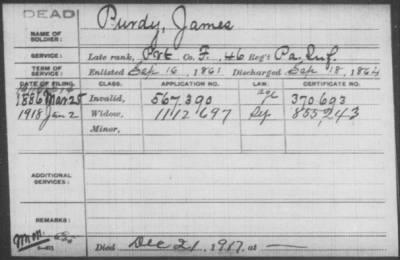 DEAD
NAME OF SOLDIER: Purdy, James
SERVICE: Late rank, Prt Co. F, 46 Reg't Pa. Inf.
TERM OF SERVICE: Enlisted Sep 16, 1861 Discharged Sep 18, 1864
DATE OF FILING. CLASS. APPLICATION NO. LAW. CERTIFICATE NO.
1886 Mar 25 Invalid, 567,390 370,693
1918 Jan 2 Widow, 1112,697 855,243
Minor,
ADDITIONAL SERVICES:
REMARKS:
Died Dec 21, 1917, at —